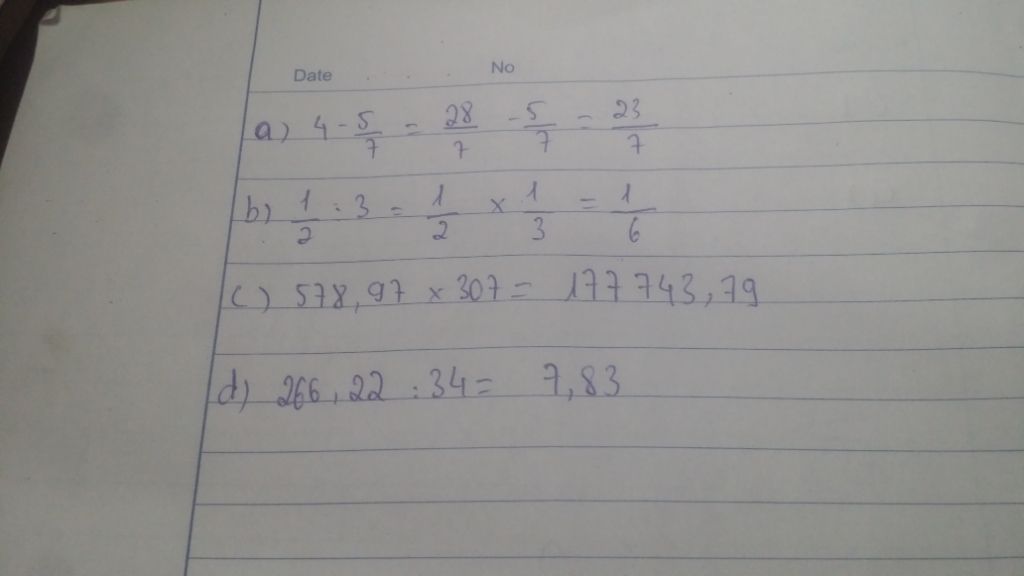 Date No
a) 4 - 5/7 = 28/7 - 5/7 = 23/7
b) 1/2 : 3 = 1/2 x 1/3 = 1/6
c) 578,97 x 307 = 177 743,79
d) 266,22 : 34 = 7,83